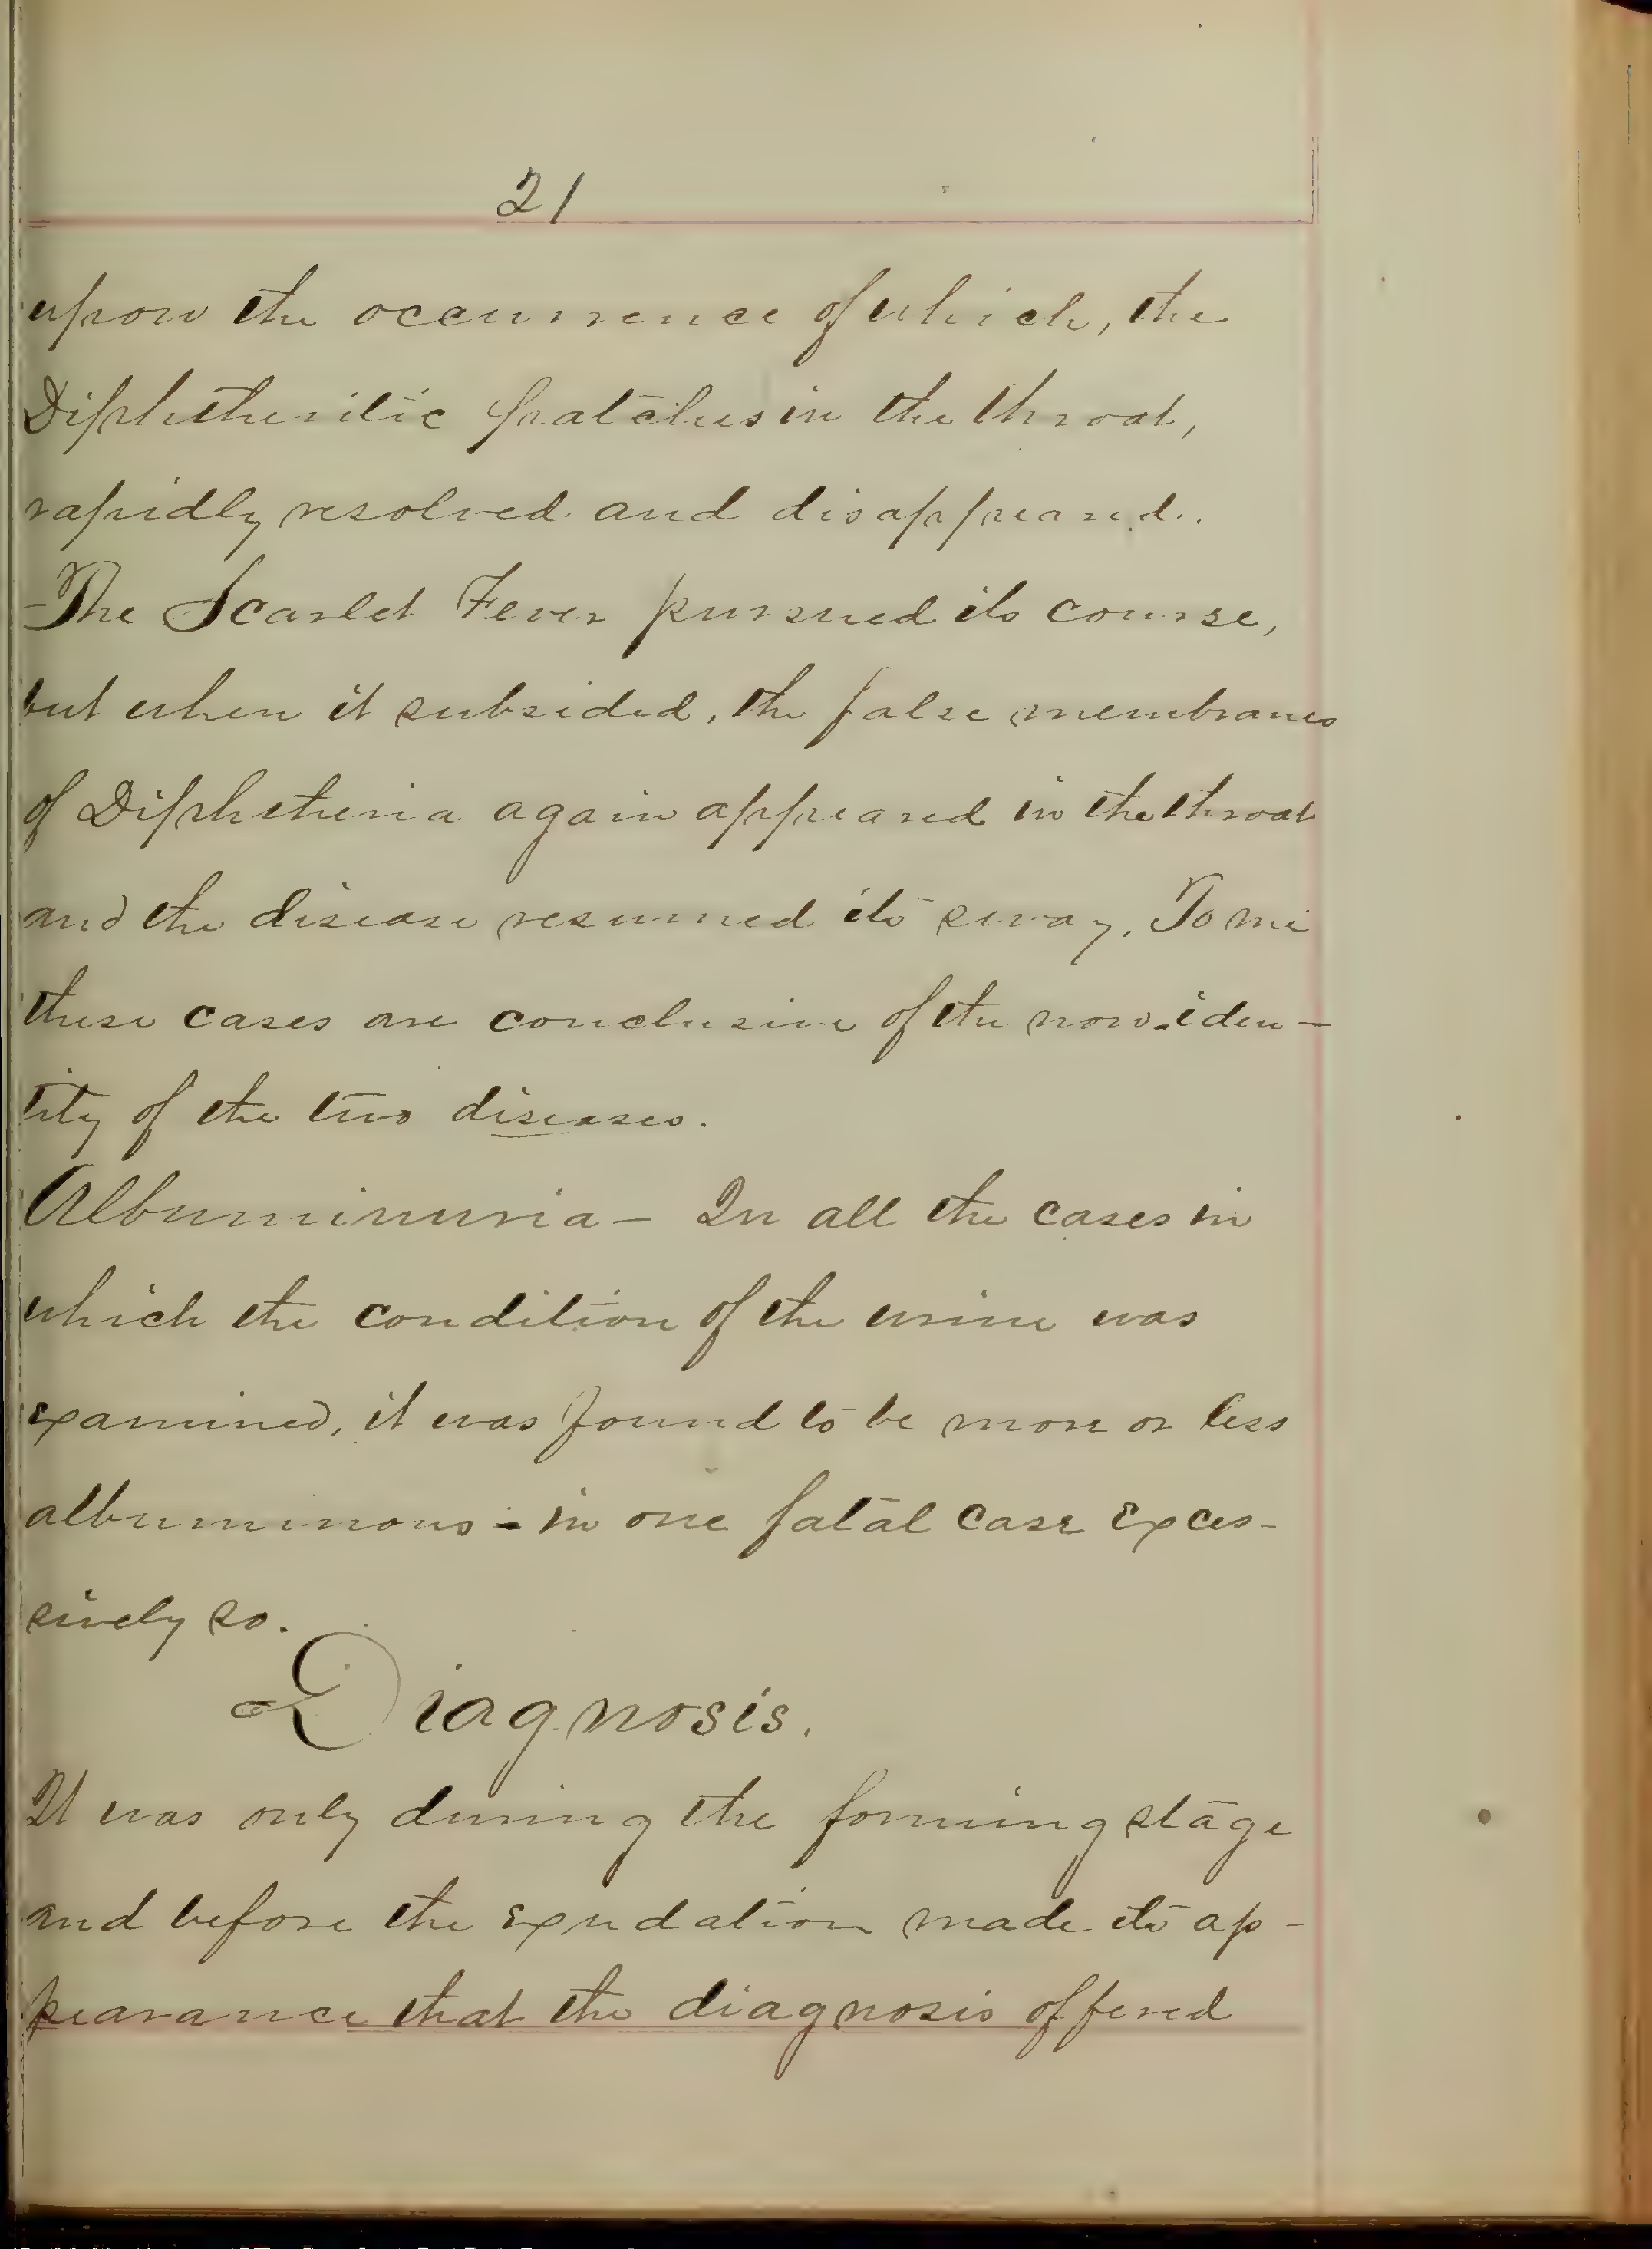 21
upon the occurrence of which, the
Diphtheritic patches in the throat,
rapidly resolved and disappeared.
-The Scarlet Fever pursued its course,
but when it subsided, the false membranes
of Diphtheria again appeared in the throat
and the disease resumed its sway. To me
these cases are conclusive of the non-iden-
tity of the two diseases.
Albuminuria - In all the cases in
which the condition of the urine was
examined, it was found to be more or less
albuminous - in one fatal case exces-
sively so.
Diagnosis.
It was only during the forming stage
and before the exudation made its ap-
pearance that the diagnosis offered